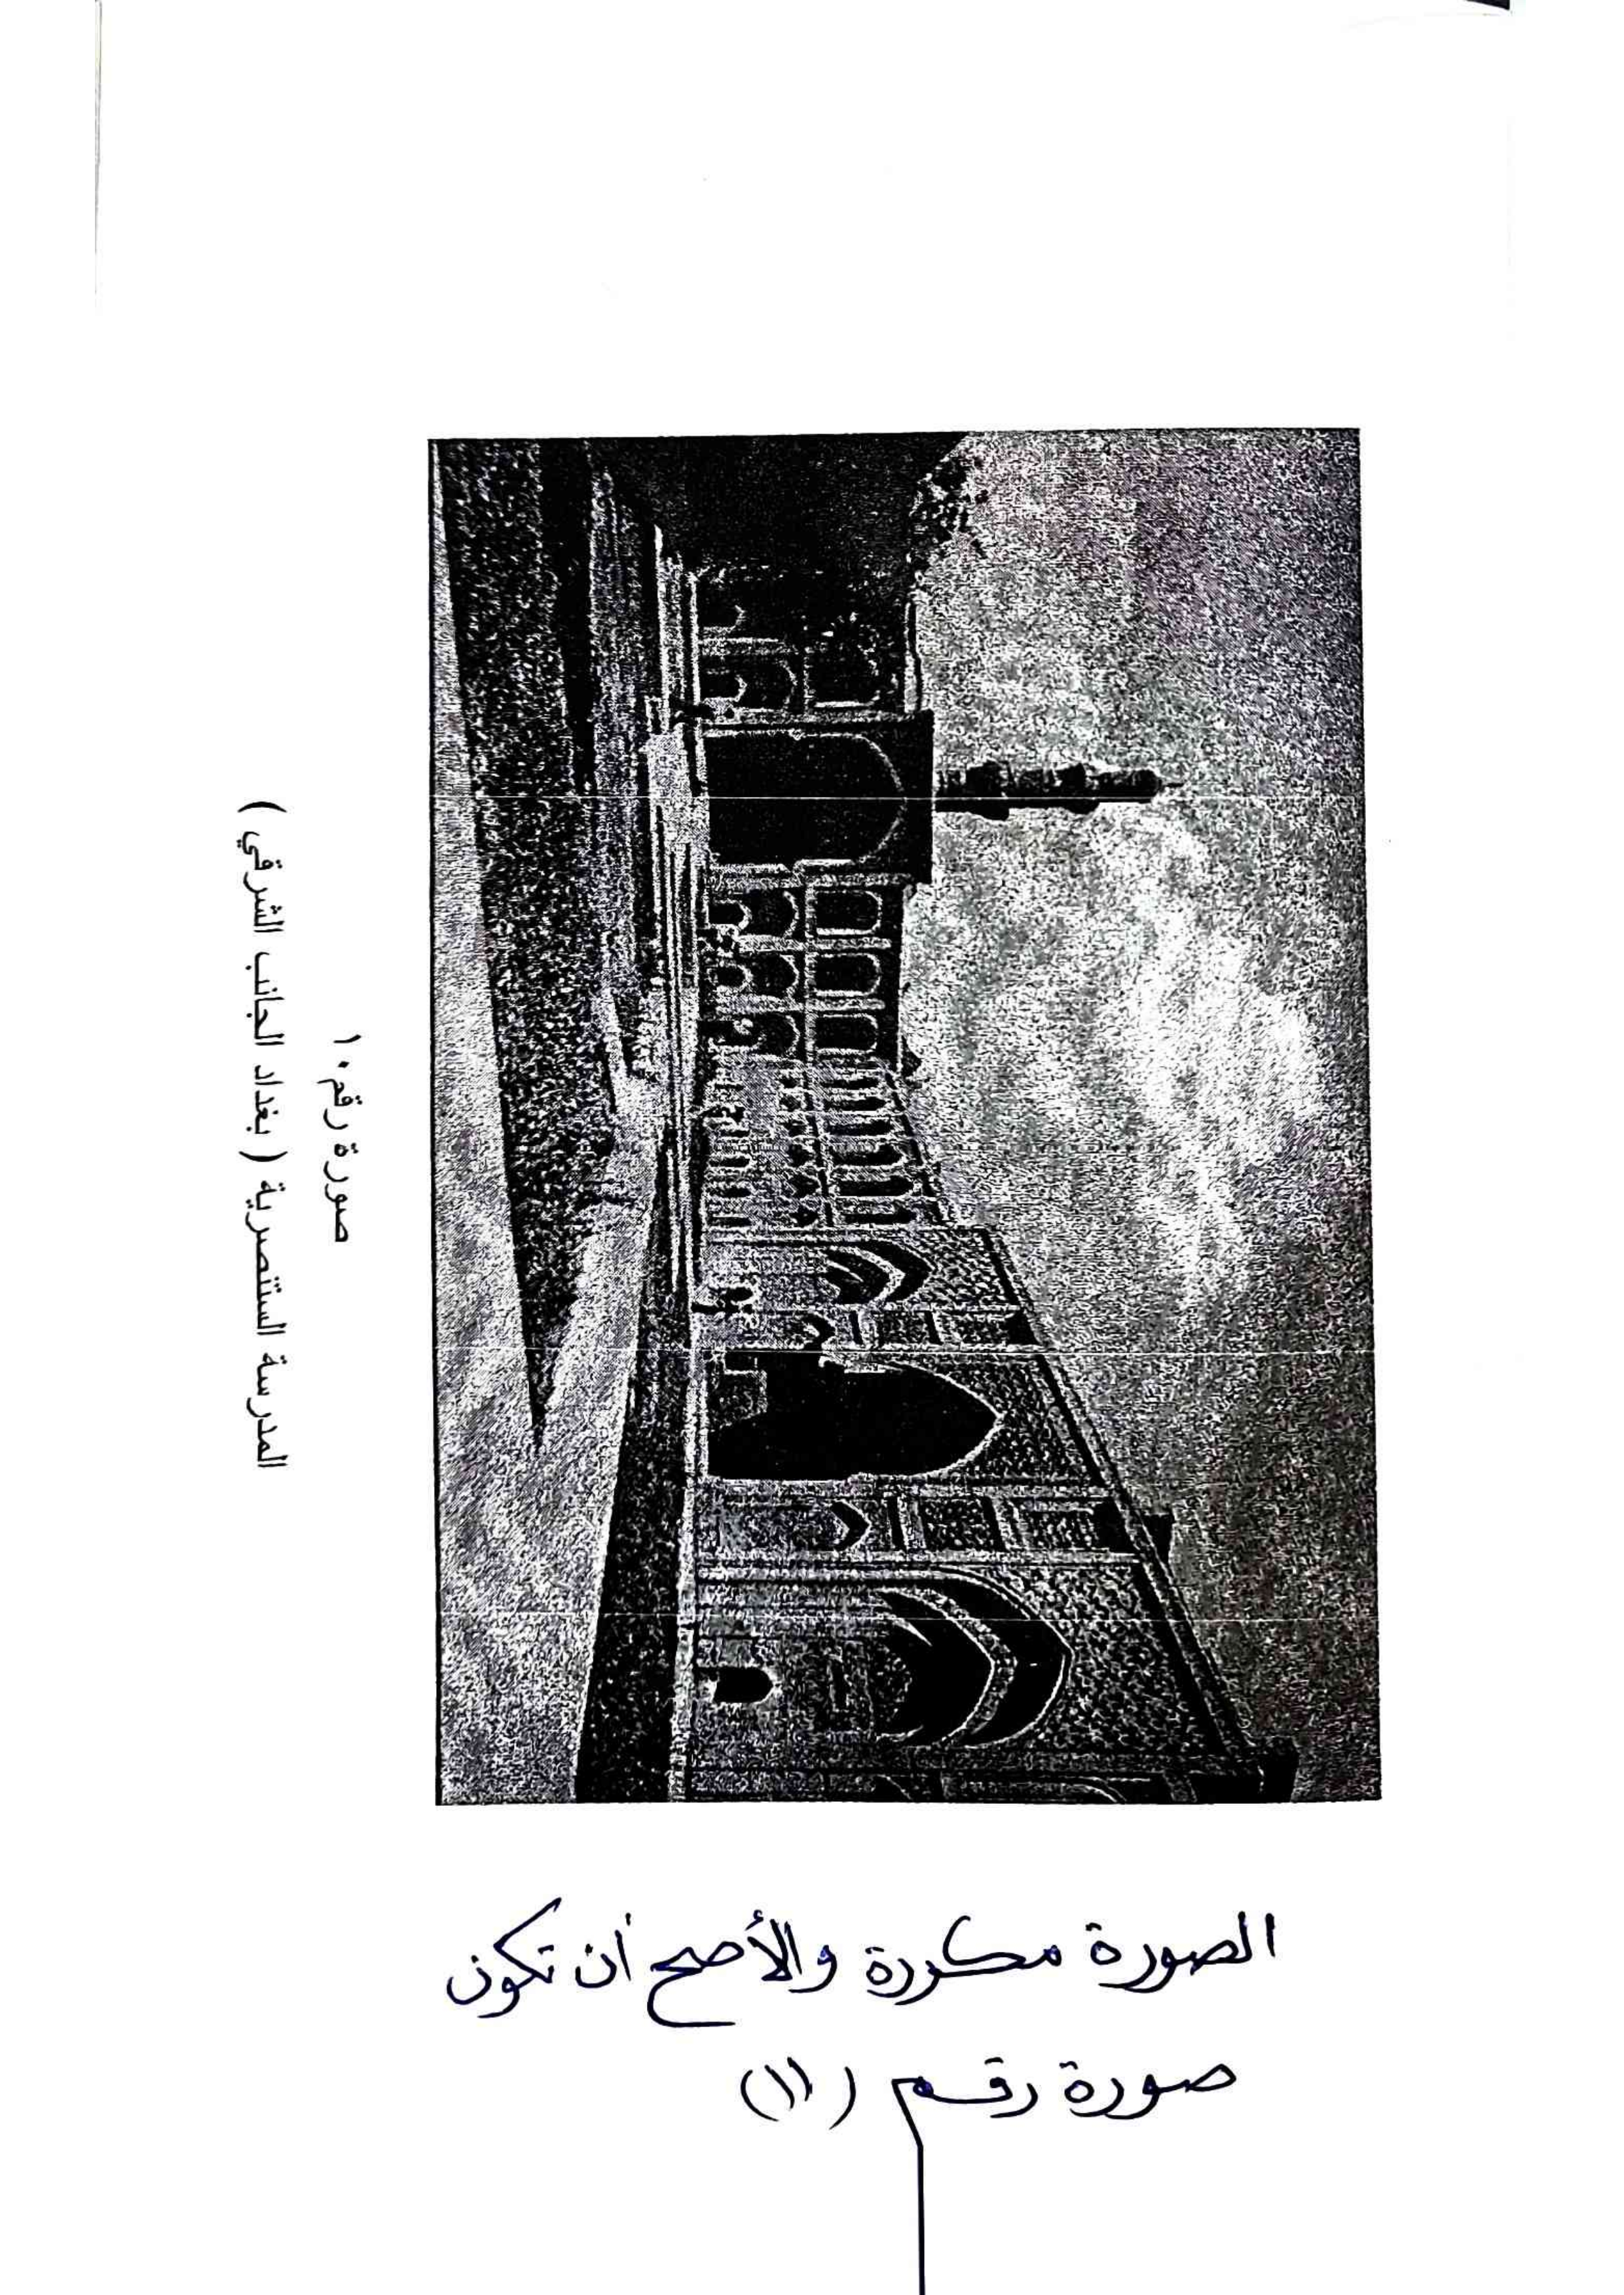 صورة رقم ١٠
المدرسة المستنصرية ( بغداد الجانب الشرقي )
الصورة مكررة والأصح أن تكون
صورة رقم (١١)